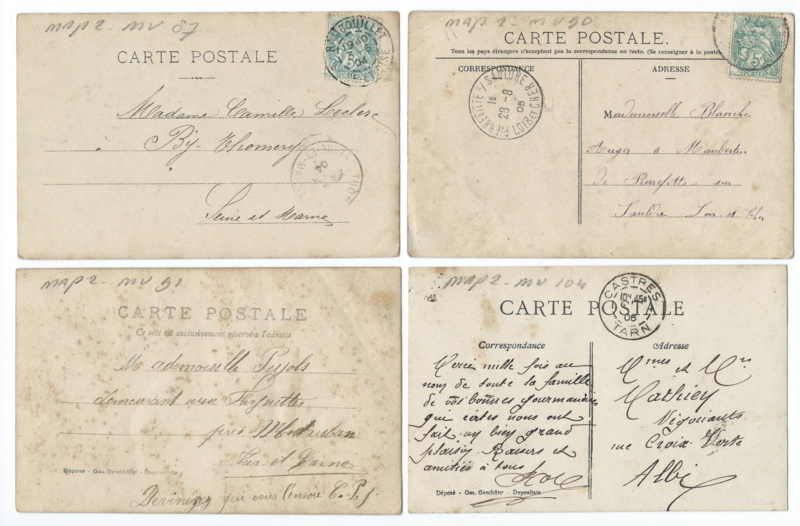 map 2 - mv 87
RAMBOUILLET
CARTE POSTALE
Madame Camille Leclerc
à By-Thomery
Seine et Marne
map 2 - mv 90
CARTE POSTALE.
Tous les pays étrangers n'acceptent pas la correspondance au recto. (Se renseigner à la poste
CORRESPONDANCE
ADRESSE
PIERREFITTE S/ SAULDRE LOIR ET CHER
28 - 8
05
Mademoiselle Blanche
Auger à Maubertin
de Pierrefitte sur
Sauldre Loir et Cher
map 2 - mv 91
CARTE POSTALE
Ce côté est exclusivement réservé à l'adresse
Mademoiselle Pujols
demeurant aux
près Montauban
Tarn et Garonne
Déposé - Ges. Geschützt - Deponirte
Devinez qui vous l'envoie
map 2 - mv 104
CARTE POSTALE
CASTRES
05
TARN
Correspondance
Adresse
Merci mille fois au
nom de toute la famille
de vos bonnes gourmandises
qui certes nous ont
fait un bien grand
plaisir. Baisers et
amitiés à tous
Déposé - Ges. Geschützt - Depositato
Mmes et Mrs
Mathieu
Négociants
rue Croix Verte
Albi